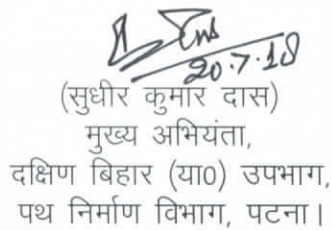 20.7.18
(सुधीर कुमार दास)
मुख्य अभियंता,
दक्षिण बिहार (या0) उपभाग,
पथ निर्माण विभाग, पटना।